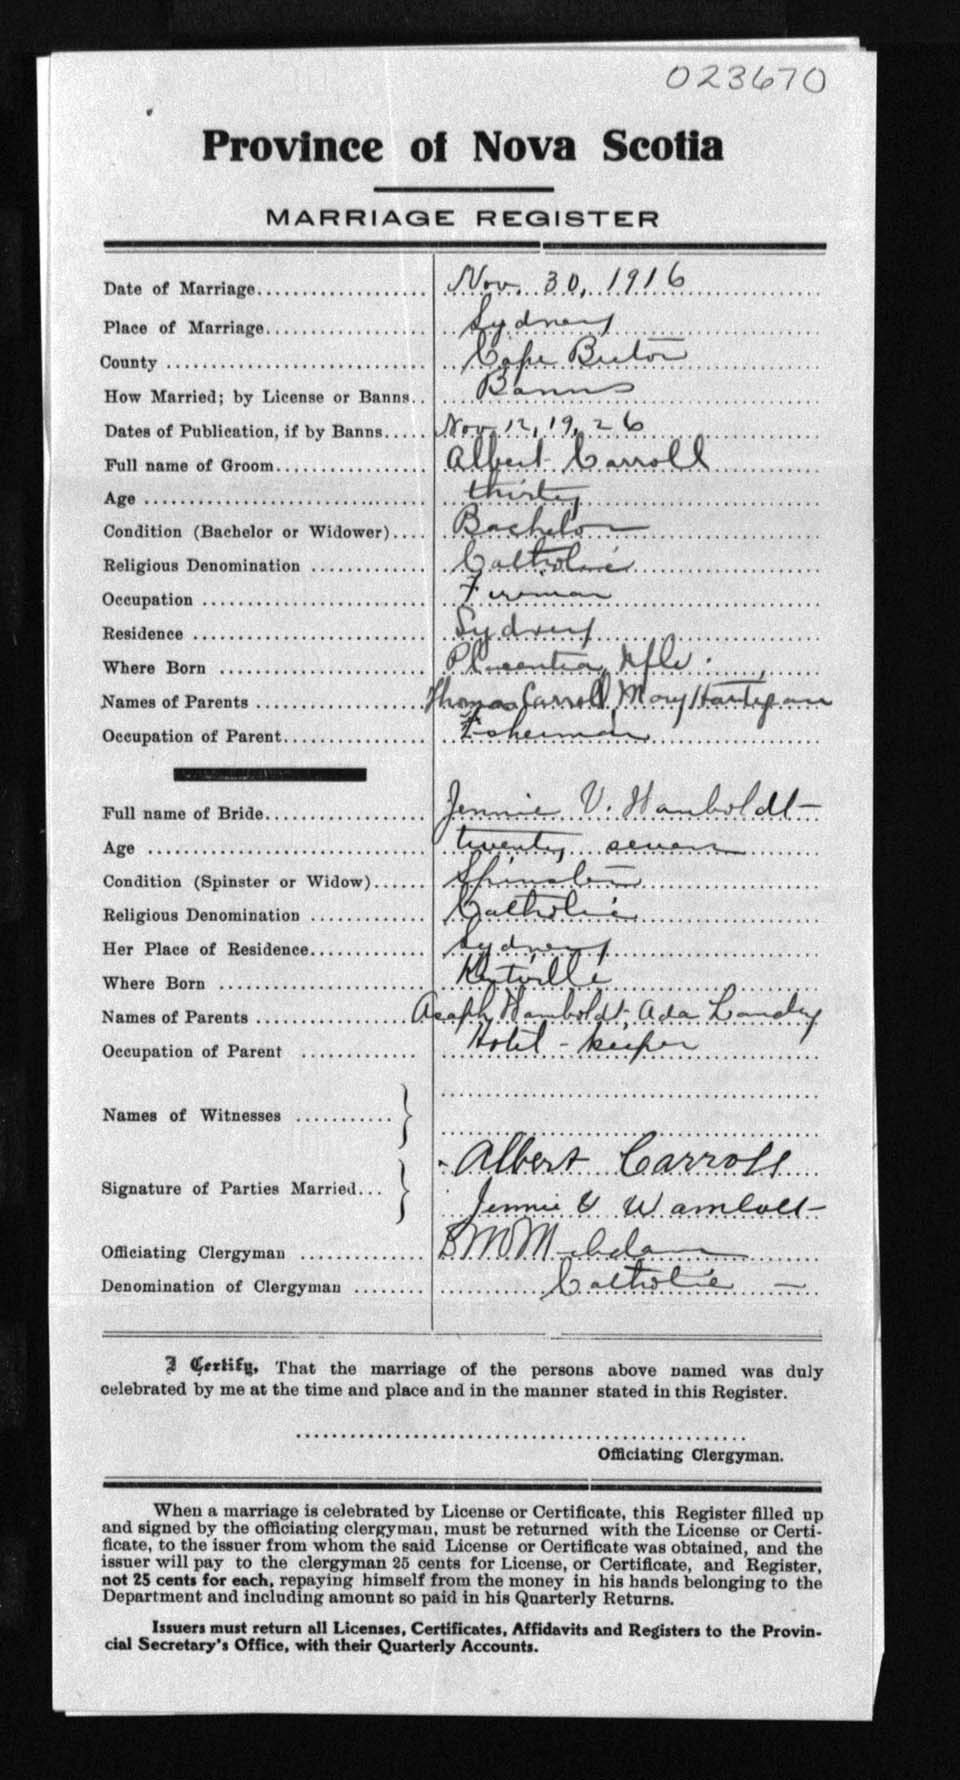 023670
Province of Nova Scotia
MARRIAGE REGISTER
Date of Marriage.................... Nov. 30, 1916
Place of Marriage................... Sydney
County ............................. Cape Breton
How Married; by License or Banns.. Banns
Dates of Publication, if by Banns..... Nov. 12, 19, 26
Full name of Groom.................. Albert Carroll
Age ................................ thirty
Condition (Bachelor or Widower).... Bachelor
Religious Denomination ............. Catholic
Occupation ......................... Fireman
Residence .......................... Sydney
Where Born ........................ Placentia, Nfld.
Names of Parents .................. Thomas Carroll, Mary Hartigan
Occupation of Parent................. Fisherman
Full name of Bride................... Jennie V. Hamboldt
Age ................................ twenty seven
Condition (Spinster or Widow)...... Spinster
Religious Denomination ............. Catholic
Her Place of Residence............. Sydney
Where Born ........................ Kentville
Names of Parents .................. Hamboldt, Ada Landry
Occupation of Parent ............. Hotel-keeper
Names of Witnesses ...........
Signature of Parties Married... Albert Carroll
Jennie V
Officiating Clergyman .............
Denomination of Clergyman ........ Catholic
I Certify, That the marriage of the persons above named was duly
celebrated by me at the time and place and in the manner stated in this Register.
Officiating Clergyman.
When a marriage is celebrated by License or Certificate, this Register filled up
and signed by the officiating clergyman, must be returned with the License or Certi-
ficate, to the issuer from whom the said License or Certificate was obtained, and the
issuer will pay to the clergyman 25 cents for License, or Certificate, and Register,
not 25 cents for each, repaying himself from the money in his hands belonging to the
Department and including amount so paid in his Quarterly Returns.
Issuers must return all Licenses, Certificates, Affidavits and Registers to the Provin-
cial Secretary's Office, with their Quarterly Accounts.